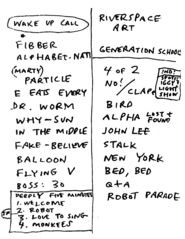 WAKE UP CALL
FIBBER
ALPHABET-NATI
(MARTY)
PARTICLE
E EATS EVERY
DR. WORM
WHY-SUN
IN THE MIDDLE
FAKE-BELIEVE
BALLOON
FLYING V
BOSS: 30
DEEPLY FIVE MINUTES
1. WELCOME
2. ROBOT
3. LOVE TO SING
4. MONKEES
RIVERSPACE
ART
GENERATION SCHOOL
4 OF 2
NO!/
CLAPS
BIRD
ALPHA LOST +
FOUND
JOHN LEE
STALK
NEW YORK
BED, BED
Q+A
ROBOT PARADE